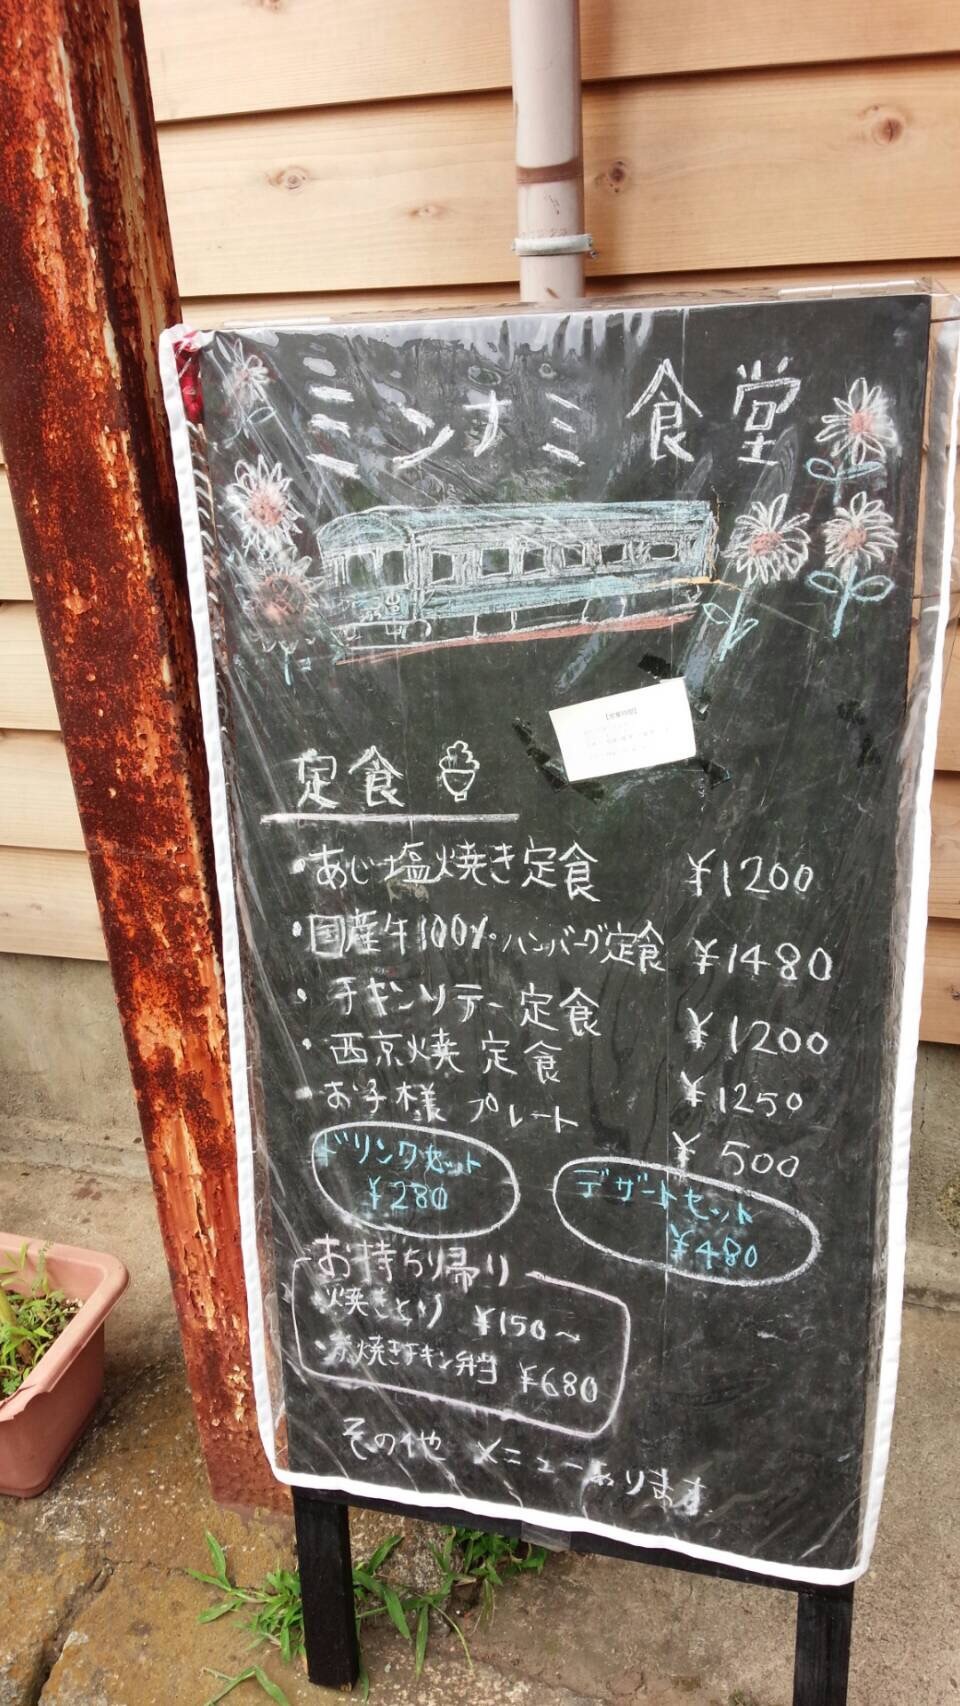 ミンナミ食堂
【営業時間】
定食
・あじ塩焼き定食 ¥1200
・国産牛100%ハンバーグ定食 ¥1480
・チキンソテー定食 ¥1200
・西京焼定食 ¥1250
・お子様プレート ¥500
ドリンクセット
¥280
デザートセット
¥480
お持ち帰り
・焼きとり ¥150〜
・炭焼きチキン弁当 ¥680
その他 メニューあります